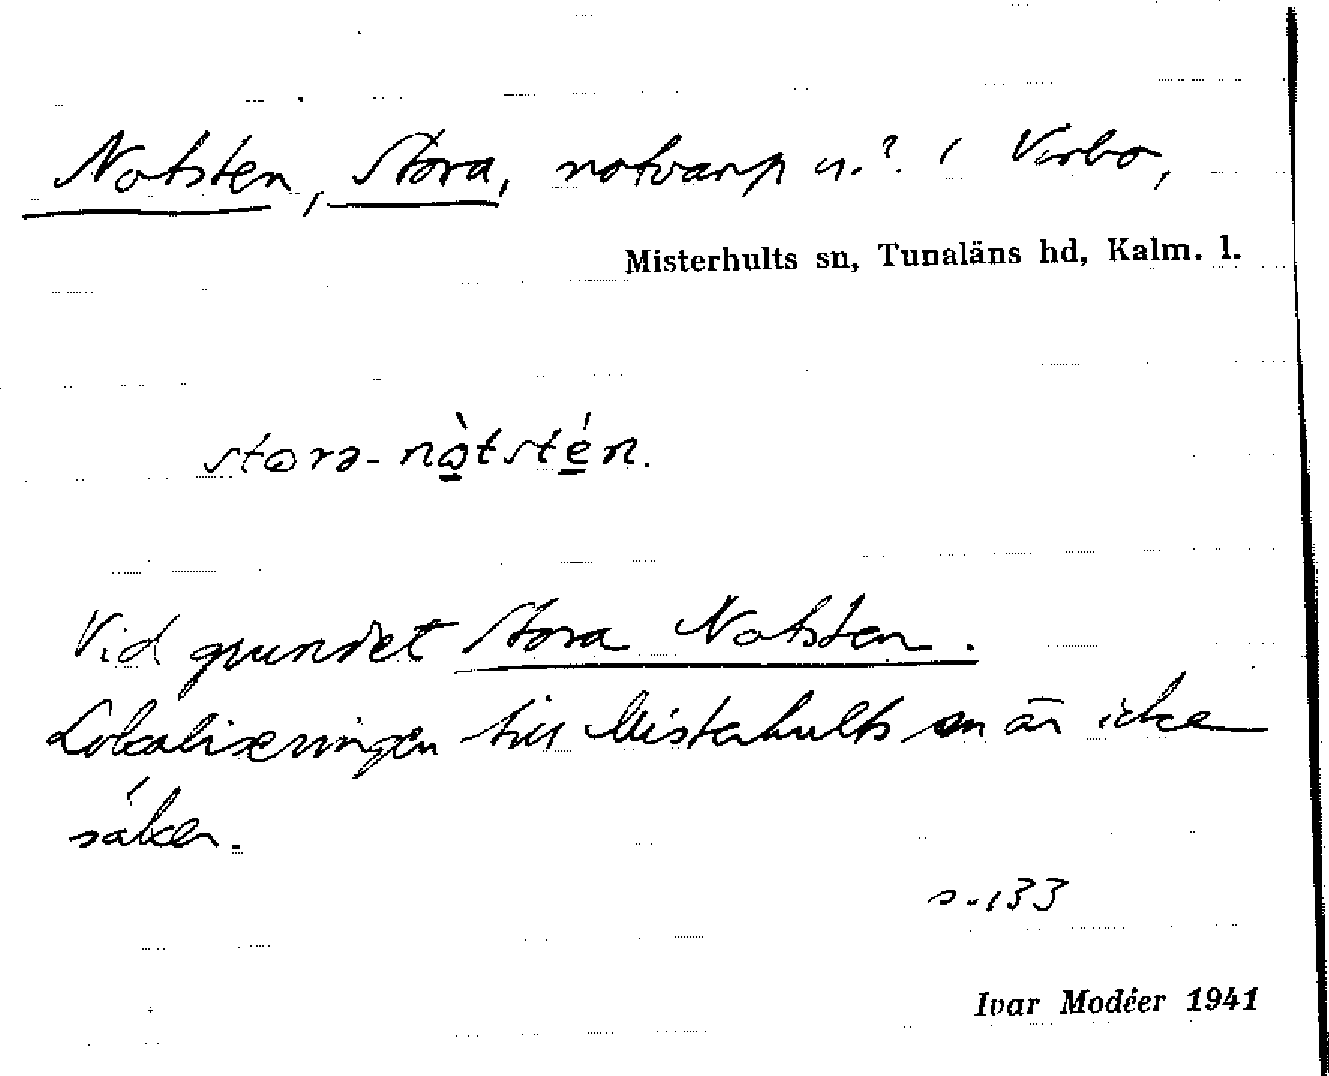 Notsten, Stora, notvarp n.? i Virbo,
Misterhults sn, Tunaläns hd, Kalm. l.
stora-nò̱tsté̱n.
Vid grundet Stora Notsten.
Lokaliseringen till Misterhults sn är icke
säker.
s. 133
Ivar Modéer 1941